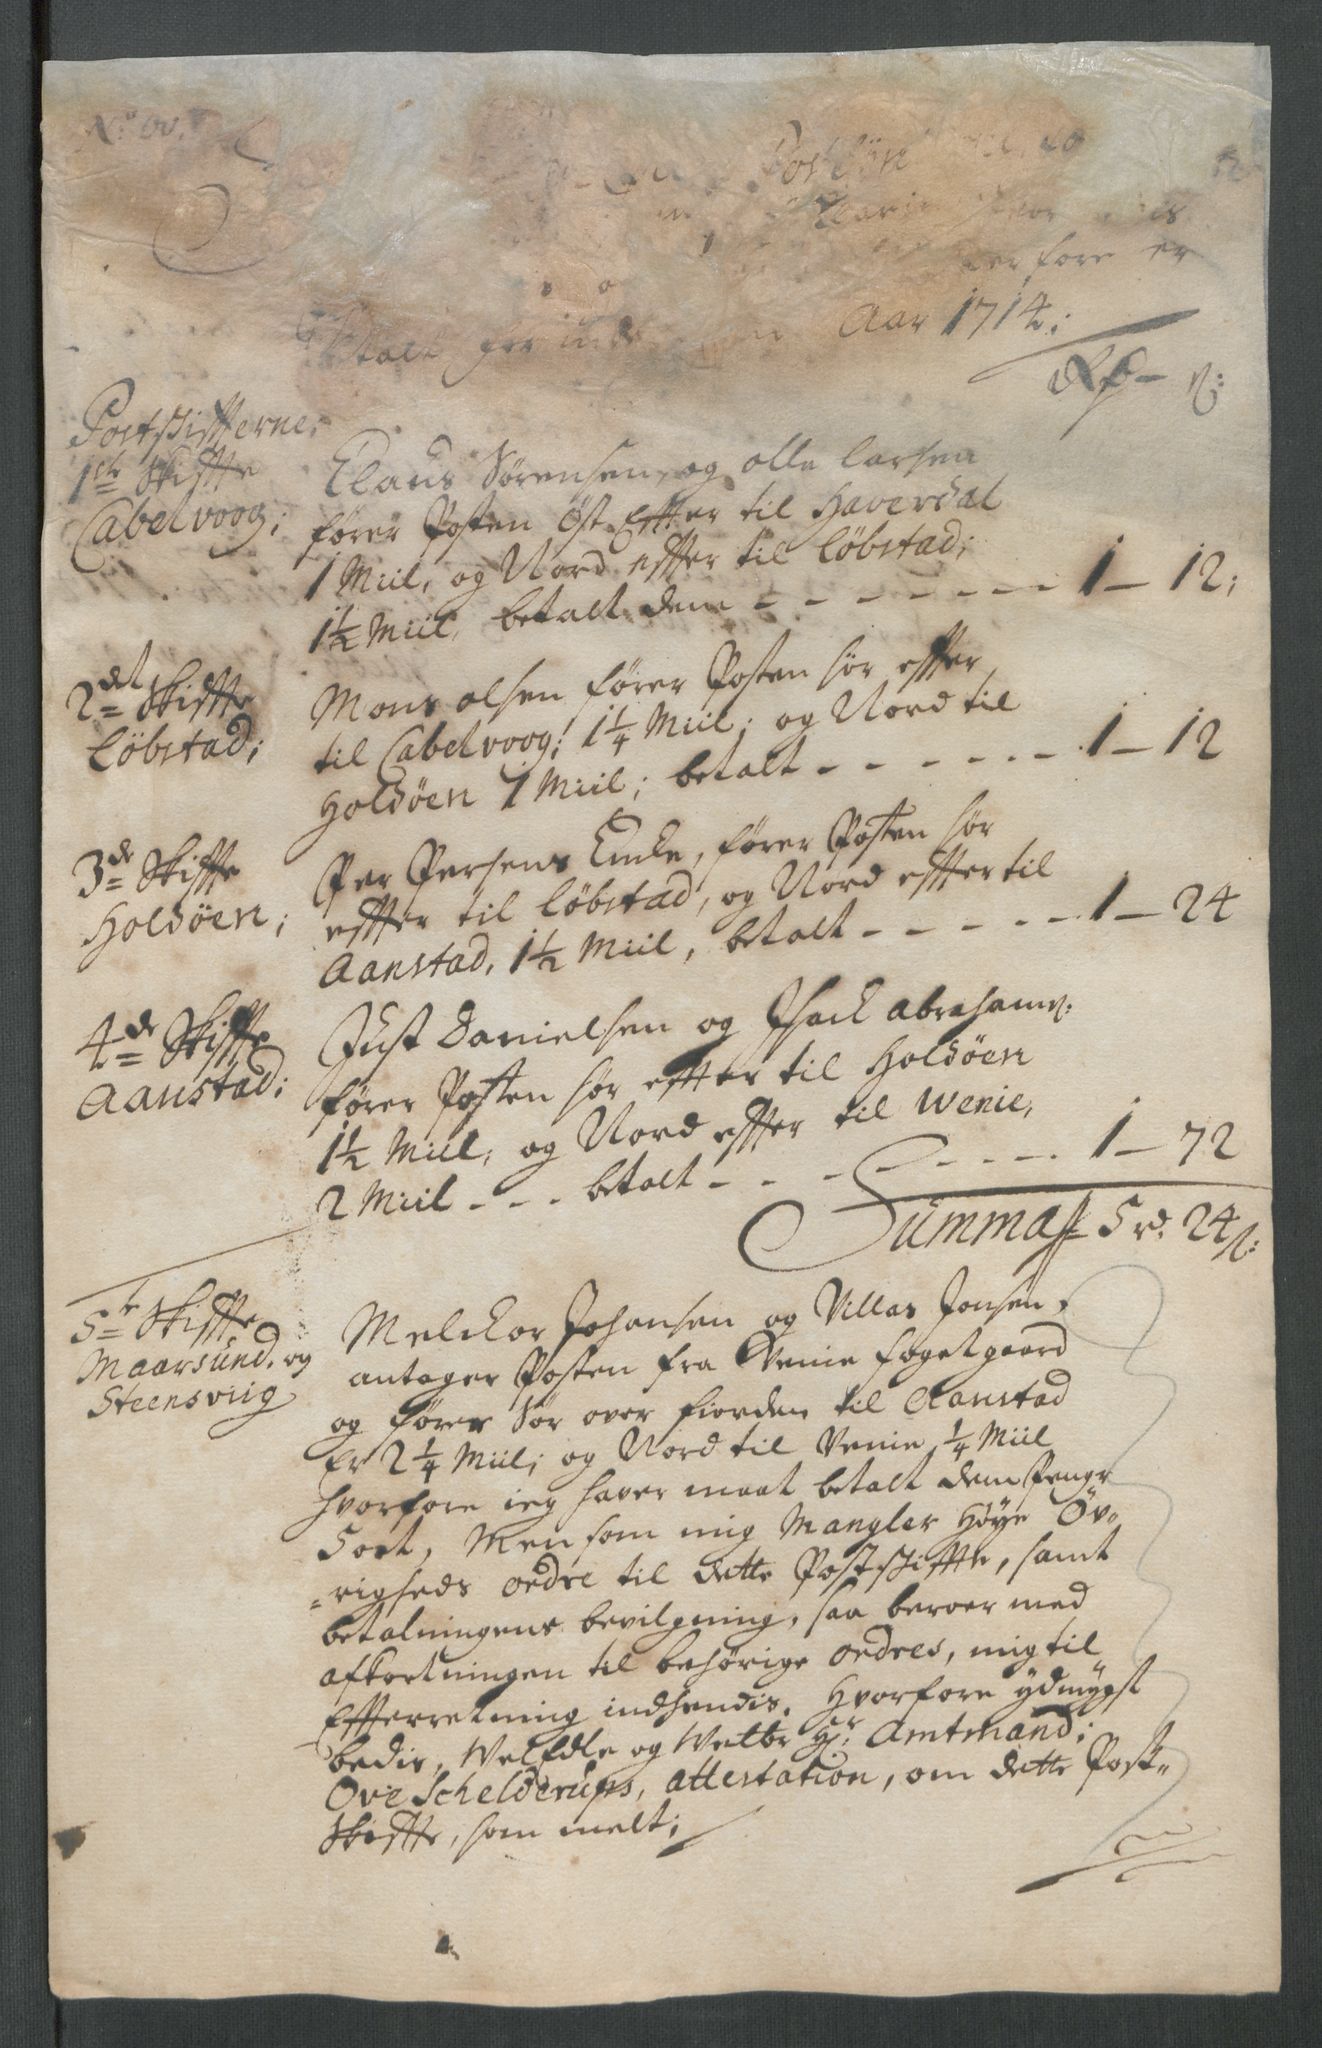 Postlön
er fore er
Aar 1714;
Rdr – ß:
Postskiffterne;
1ste Skiffte
Cabelvoog;
Claus Sørensen, og olle larsen
fører Posten Öst Effter til Haversdal
1 Miil, og Nord effter til Löbstad;
1½ Miil, betalt dem - - - - - - - 1 – 12;
2det Skiffte
Löbstad;
Mons olsen fører Posten sör effter
til Cabelvoog; 1¼ Miil; og Nord til
Holdöen 1 Miil; betalt - - - - - - 1 – 12
3de Skiffte
Holdöen;
Per Persens Encke, fører Posten sör
effter til Löbstad, og Nord effter til
Aanstad, 1½ Miil, betalt - - - - - 1 – 24
4de Skiffte
Aanstad;
Just Danielsen og Isack abrahamß:
fører Posten sör effter til Holdöen
1½ Miil, og Nord effter til Wenie,
2 Miil - - - betalt - - - - - - - - 1 – 72
Summa 5 rd. 24 ß:
5te Skiffte
Maarsund, og
Steensviig
Melckor Johansen og Villas Jonsen,
antager Posten fra Wenie fogetgaard
og fører Sör over fiorden til Aanstad
Er 2¼ Miil; og Nord til Venie ¼ Miil
hvorfore ieg haver maat betalt dem Penge
5 ort, Men som mig Mangler Höye Öv-
=righeds ordre til dette Postskiffte, samt
betalningens bevilgning, saa beroer med
afkortningen til behörige ordres, mig til
Effterretning indhendis. Hvorfore ydmygst
bedis, WelEdle og Welbr Hr. Amtmand;
Ove Schelderups, attestation, om dette Post=
Skiffte, som melt;